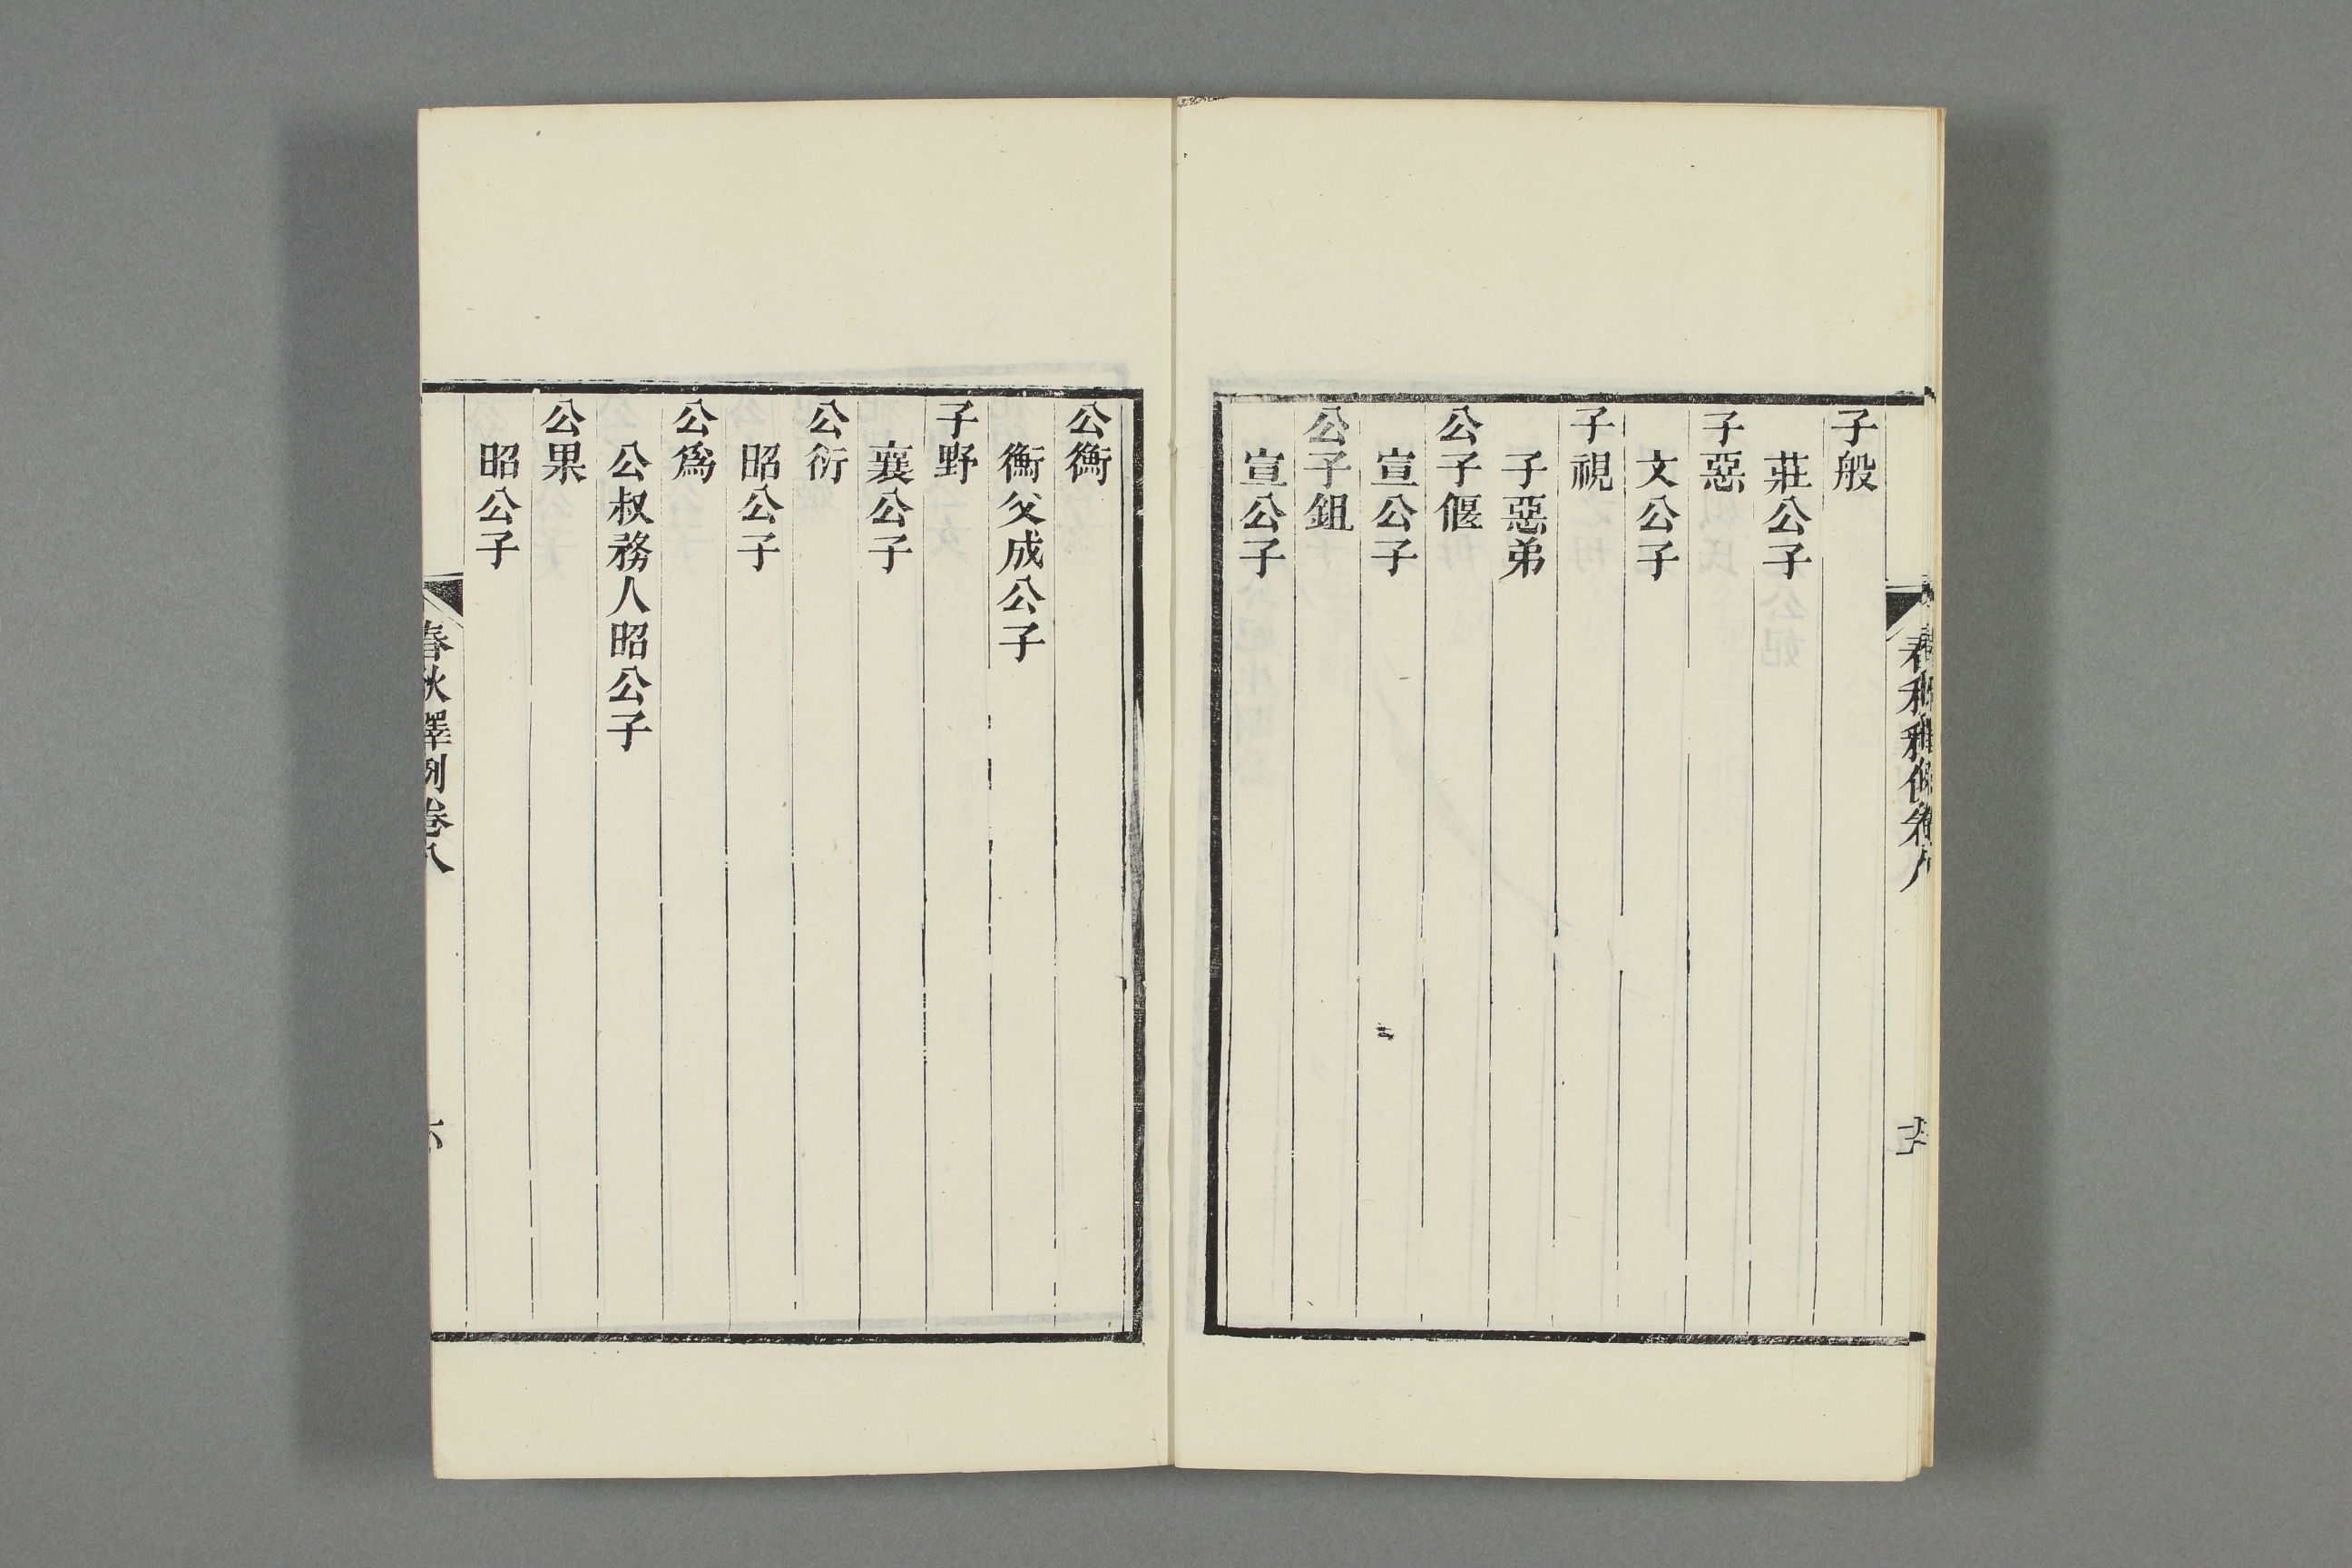 子般
莊公子
子惡
文公子
子視
子惡弟
公子偃
宣公子
公子鉏
宣公子
公衡
衡父成公子
子野
襄公子
公衍
昭公子
公爲
公叔務人昭公子
公果
昭公子
春秋釋例卷八
六